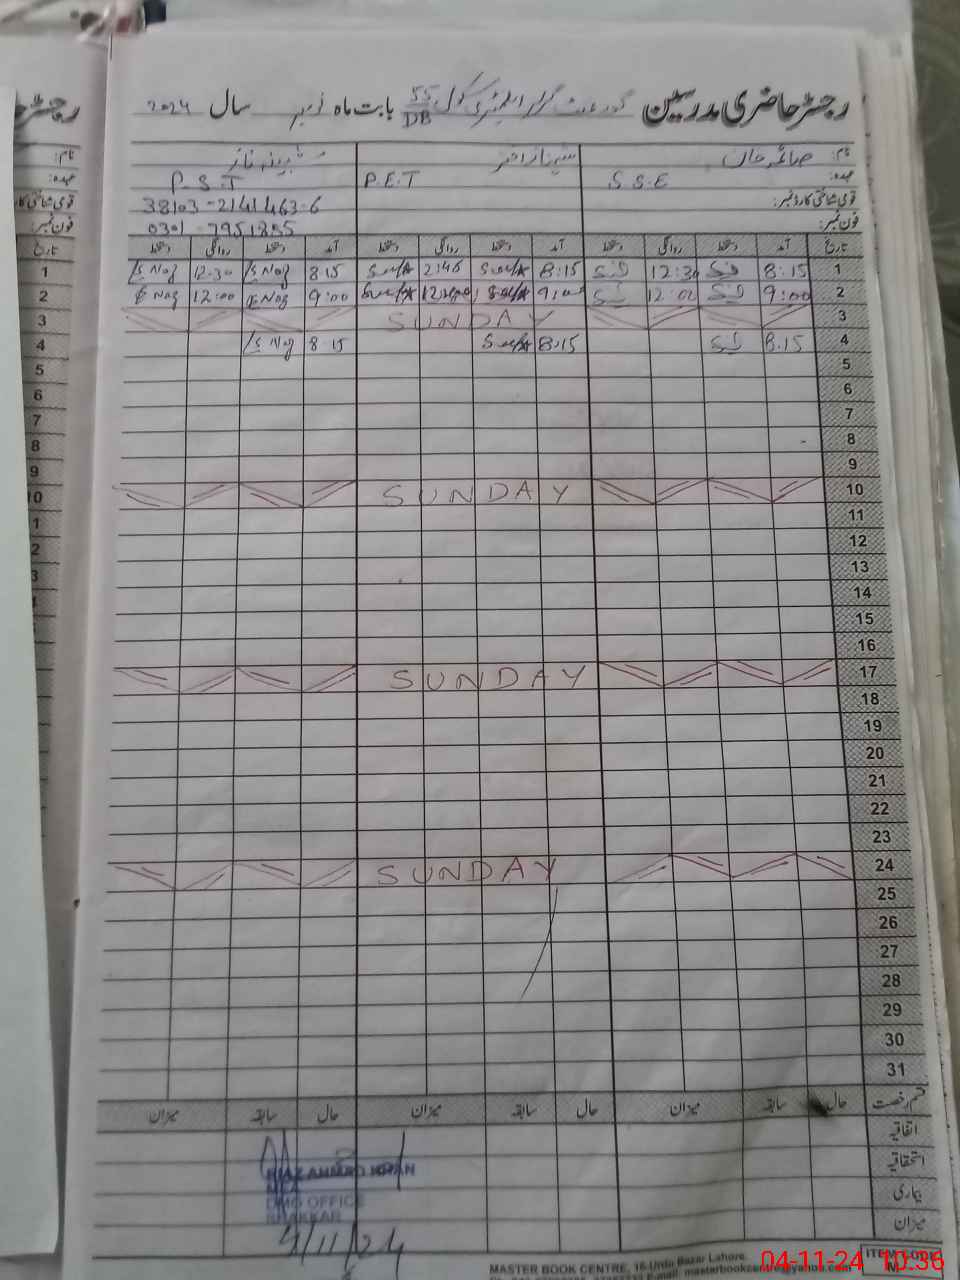 رجسٹر حاضری مدرسین گورنمنٹ گرلز ایلیمنٹری سکول 55/DB بابت ماہ نومبر سال 2024
نام: صائمہ خان شہناز اختر ثمینہ ناز
عہدہ: S.S.E P.E.T P.S.T
قومی شناختی کارڈ نمبر: 38103-2141463-6
فون نمبر: 0301-7951855
تاریخ آمد دستخط روانگی دستخط آمد دستخط روانگی دستخط آمد دستخط روانگی دستخط
1 8:15 12:30 8:15 8 15 S Naz 12:30 S Naz
2 9:00 12:00 9:00 9:00 S Naz 12:00 S Naz
3 SUNDAY
4 8:15 8:15 8-15 S Naz
5
6
7
8
9
10 SUNDAY
11
12
13
14
15
16
17 SUNDAY
18
19
20
21
22
23
24 SUNDAY
25
26
27
28
29
30
31
قسم رخصت حال سابقہ میزان حال سابقہ میزان حال سابقہ میزان
اتفاقیہ
استحقاقیہ
بیماری
میزان
RIAZ AHMAD KHAN
DMO OFFICE
BHAKKAR
4/11/24
MASTER BOOK CENTRE, 16-Urdu Bazar Lahore.
E-mail: masterbookcentre@yahoo.com
ITEM CODE
04-11-24 10:36